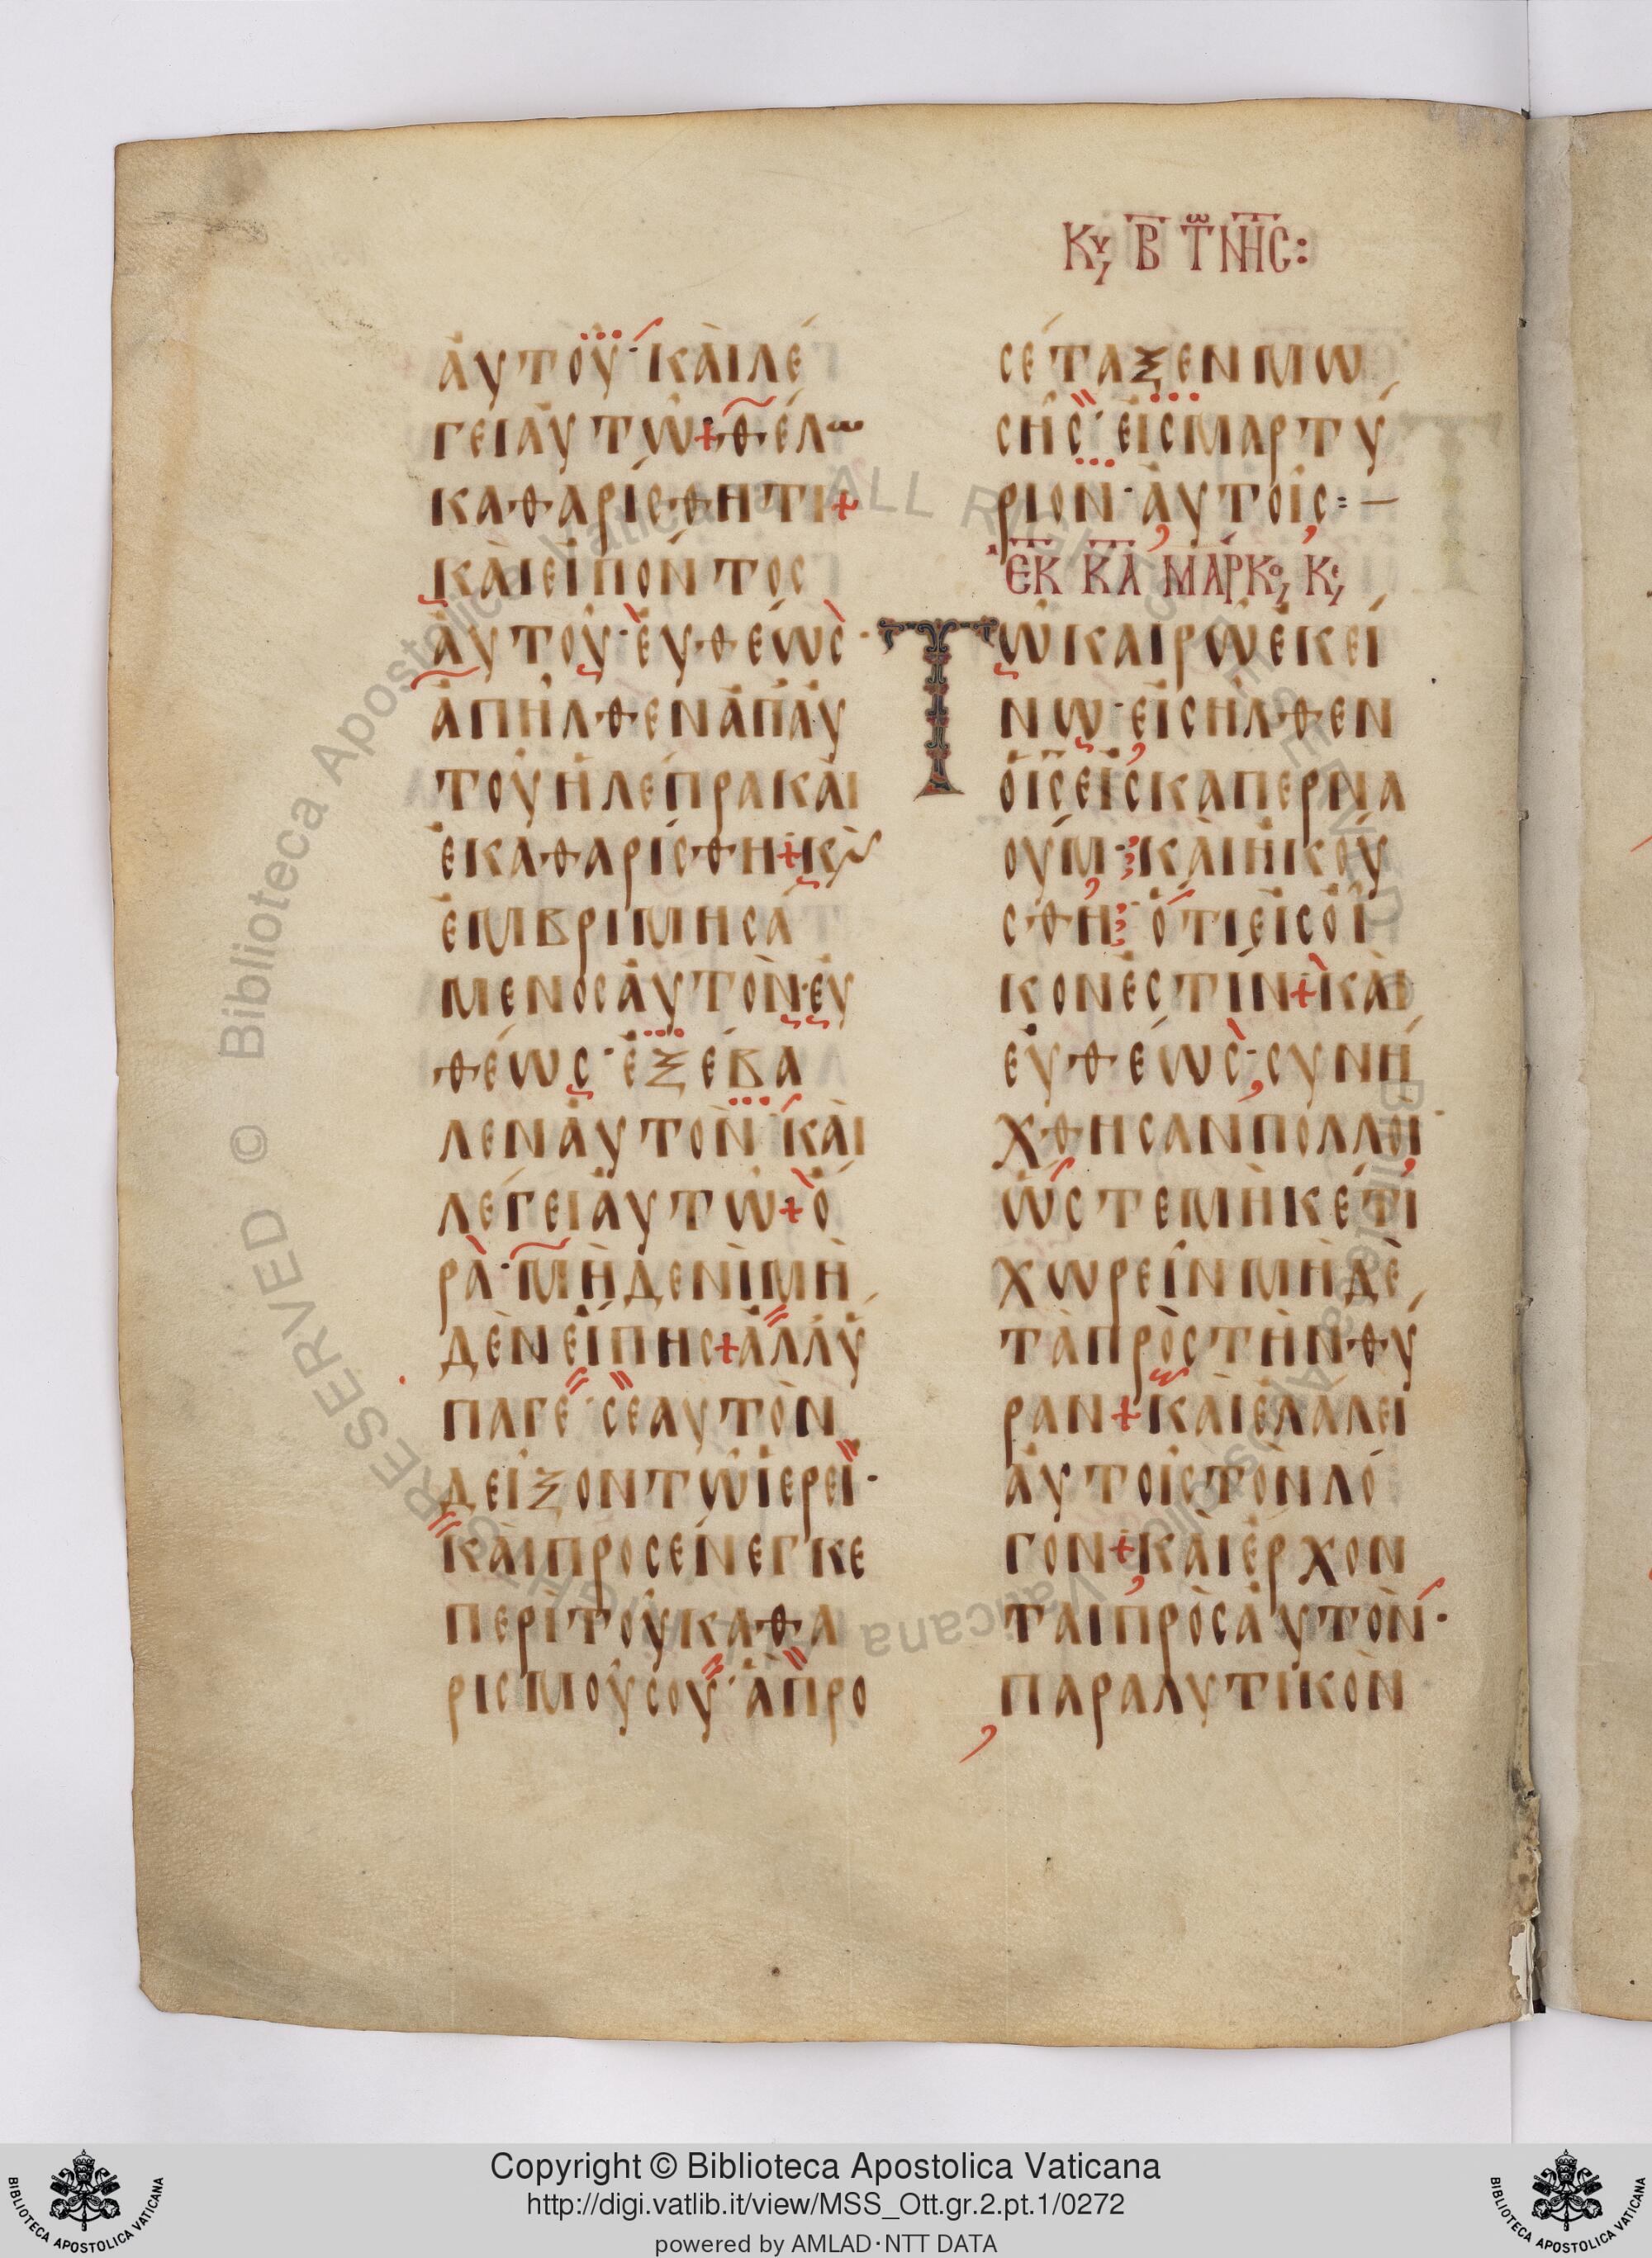 Κυ, Β ΤΩΝ ΝΗΣ:
ἀυτοῦ· κὰι λέ
γει ἀυτῶ + θέλω
καθαρίσθητι +
κὰι εἰπόντος
ἀυτοῦ· ἐυθέως·
ἀπῆλθεν ἀπ' ἀυ
τοῦ ἡ λέπρα κὰι
ἐκαθαρίσθη + κὶ
ἐμβριμησά
μενος ἀυτὸν· ἐυ
θέως· ἐξέβα
λεν ἀυτὸν· κὰι
λέγει ἀυτῶ + ὅ
ρα· μὴδενὶ μὴ
δὲν εἴπης + ἀλλ' ὑ
παγε· σεαυτὸν
δεῖξον τῶ ἱερεῖ·
κὰι προσένεγκε
περὶ τοῦ καθα
ρισμοῦ σου· ἃ προ
σέταξεν μω
σῆς· εἰς μαρτύ
ριον· ἀυτοῖς :–
ἘΚ ΚΑ ΜΑΡΚο, Κε,
Τῶ καιρῶ ἐκεί
νω· εἰσῆλθεν
ὁ ις εἰς καπερνα
ούμ· κὰι ἠκού
σθη· ὅτι εἰς οἶ
κον ἐστίν + κὰι
ἐυθέως· συνή
χθησαν πολλοὶ
ὥστε μὴκέτι
χωρεῖν μὴδὲ
τὰ πρὸς τὴν θύ
ραν + κὰι ἐλάλει
ἀυτοῖς τὸν λό
γον + κὰι ἔρχον
ται πρὸς ἀυτὸν·
παραλυτικὸν
© Biblioteca Apostolica Vaticana ALL RIGHTS RESERVED
Copyright © Biblioteca Apostolica Vaticana
http://digi.vatlib.it/view/MSS_Ott.gr.2.pt.1/0272
powered by AMLAD·NTT DATA
BIBLIOTECA APOSTOLICA VATICANA
BIBLIOTECA APOSTOLICA VATICANA